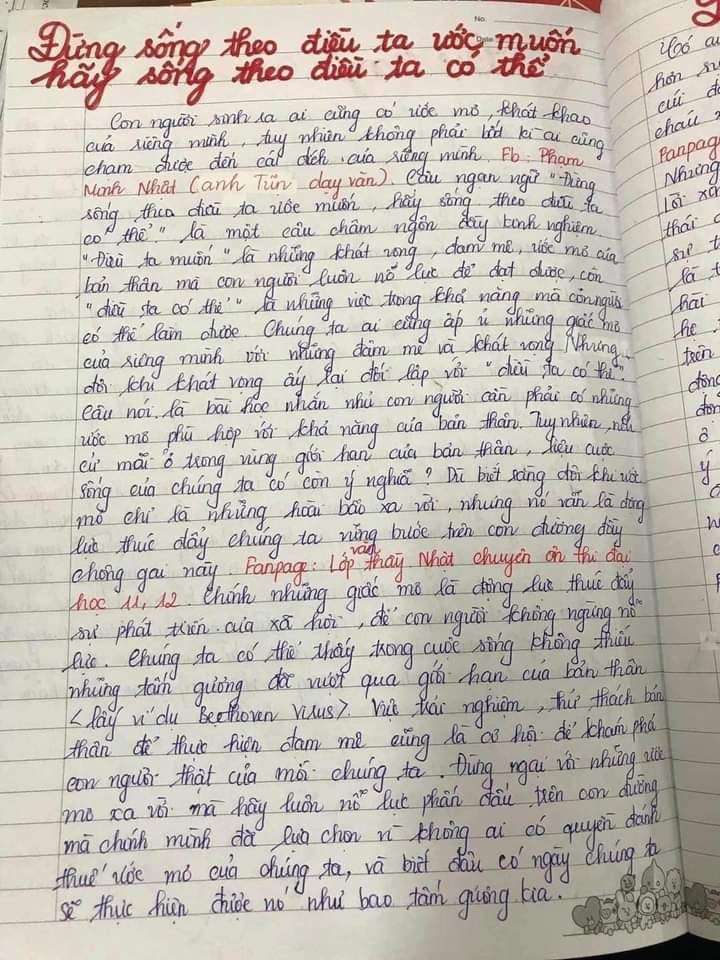 No.
Date
Đừng sống theo điều ta ước muốn
hãy sống theo điều ta có thể
Con người sinh ra ai cũng có ước mơ, khát khao
của riêng mình, tuy nhiên không phải bất kì ai cũng
chạm được đến cái đích của riêng mình. Fb: Phạm
Minh Nhật (anh Tũn dạy văn). Câu ngạn ngữ "Đừng
sống theo điều ta ước muốn, hãy sống theo điều ta
có thể" là một câu châm ngôn đầy kinh nghiệm.
"Điều ta muốn" là những khát vọng, đam mê, ước mơ của
bản thân mà con người luôn nỗ lực để đạt được, còn
"điều ta có thể" là những việc trong khả năng mà con người
có thể làm được. Chúng ta ai cũng ấp ủ những giấc mơ
của riêng mình với những đam mê và khát vọng. Nhưng
đôi khi khát vọng ấy lại đối lập với "điều ta có thể".
Câu nói là bài học nhắn nhủ con người cần phải có những
ước mơ phù hợp với khả năng của bản thân. Tuy nhiên, nếu
cứ mãi ở trong vùng giới hạn của bản thân, liệu cuộc
sống của chúng ta có còn ý nghĩa? Dù biết rằng đôi khi ước
mơ chỉ là những hoài bão xa vời, nhưng nó vẫn là động
lực thúc đẩy chúng ta vững bước trên con đường đầy
chông gai này. Fanpage: Lớp văn thầy Nhật chuyên ôn thi đại
học 11, 12. Chính những giấc mơ là động lực thúc đẩy
sự phát triển của xã hội, để con người không ngừng nỗ
lực. Chúng ta có thể thấy trong cuộc sống không thiếu
những tấm gương đã vượt qua giới hạn của bản thân
<lấy ví dụ Beethoven, Visus>. Việc trải nghiệm, thử thách bản
thân để thực hiện đam mê cũng là cơ hội để khám phá
con người thật của mỗi chúng ta. Đừng ngại với những ước
mơ xa vời mà hãy luôn nỗ lực phấn đấu trên con đường
mà chính mình đã lựa chọn vì không ai có quyền đánh
thuế ước mơ của chúng ta, và biết đâu có ngày chúng ta
sẽ thực hiện được nó như bao tấm gương kia.